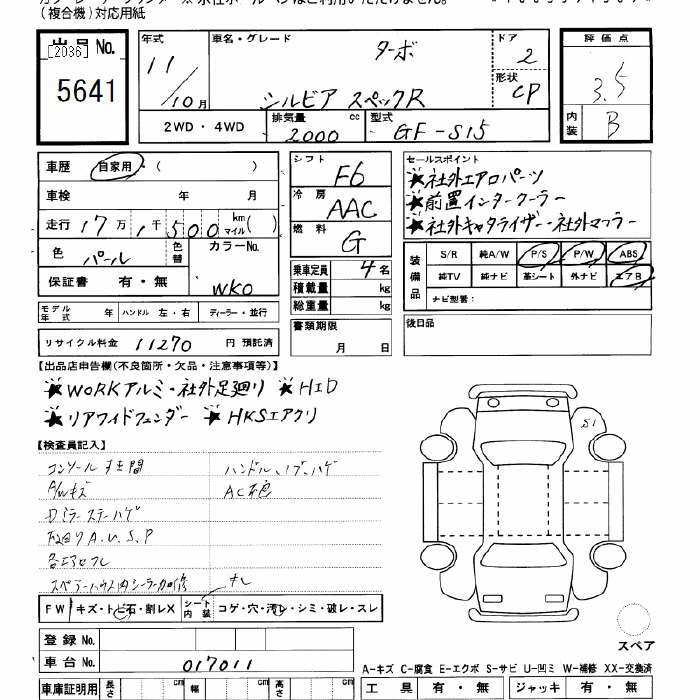 (複合機)対応用紙
出品 No.
[2036]
5641
年式 11 / 10月
車名・グレード ターボ
シルビア スペックR
ドア 2
形状 CP
評価点 3.5
内装 B
2WD・4WD
排気量 2000 cc
型式 GF-S15
車歴 自家用・( )
車検 年 月
走行 17万 1千500 km マイル( )
色 パール 色替
カラーNo. WK0
保証書 有・無
モデル年式 年 ハンドル 左・右 ディーラー・並行
リサイクル料金 11270 円 預託済
シフト F6
冷房 AAC
燃料 G
乗車定員 4名
積載量 kg
総重量 kg
書類期限 月 日
セールスポイント
★社外エアロパーツ
★前置インタークーラー
★社外キャタライザー・社外マフラー
装備品 S/R 純A/W P/S P/W ABS
純TV 純ナビ 革シート 外ナビ エアB
ナビ型番:
後日品
【出品店申告欄(不良箇所・欠品・注意事項等)】
★WORKアルミ・社外足廻り ★HID
★リアワイドフェンダー ★HKSエアクリ
【検査員記入】
ハンドル、ノブ、ハゲ
A/Wキズ
S1
FW キズ・トビ石・割レX シート内装 コゲ・穴・汚レ・シミ・破レ・スレ
登録 No.
車台 No. 017011
スペア
A-キズ C-腐食 E-エクボ S-サビ U-凹ミ W-補修 XX-交換済
車庫証明用 長さ cm 幅 cm 高さ cm
工具 有・無 ジャッキ 有・無